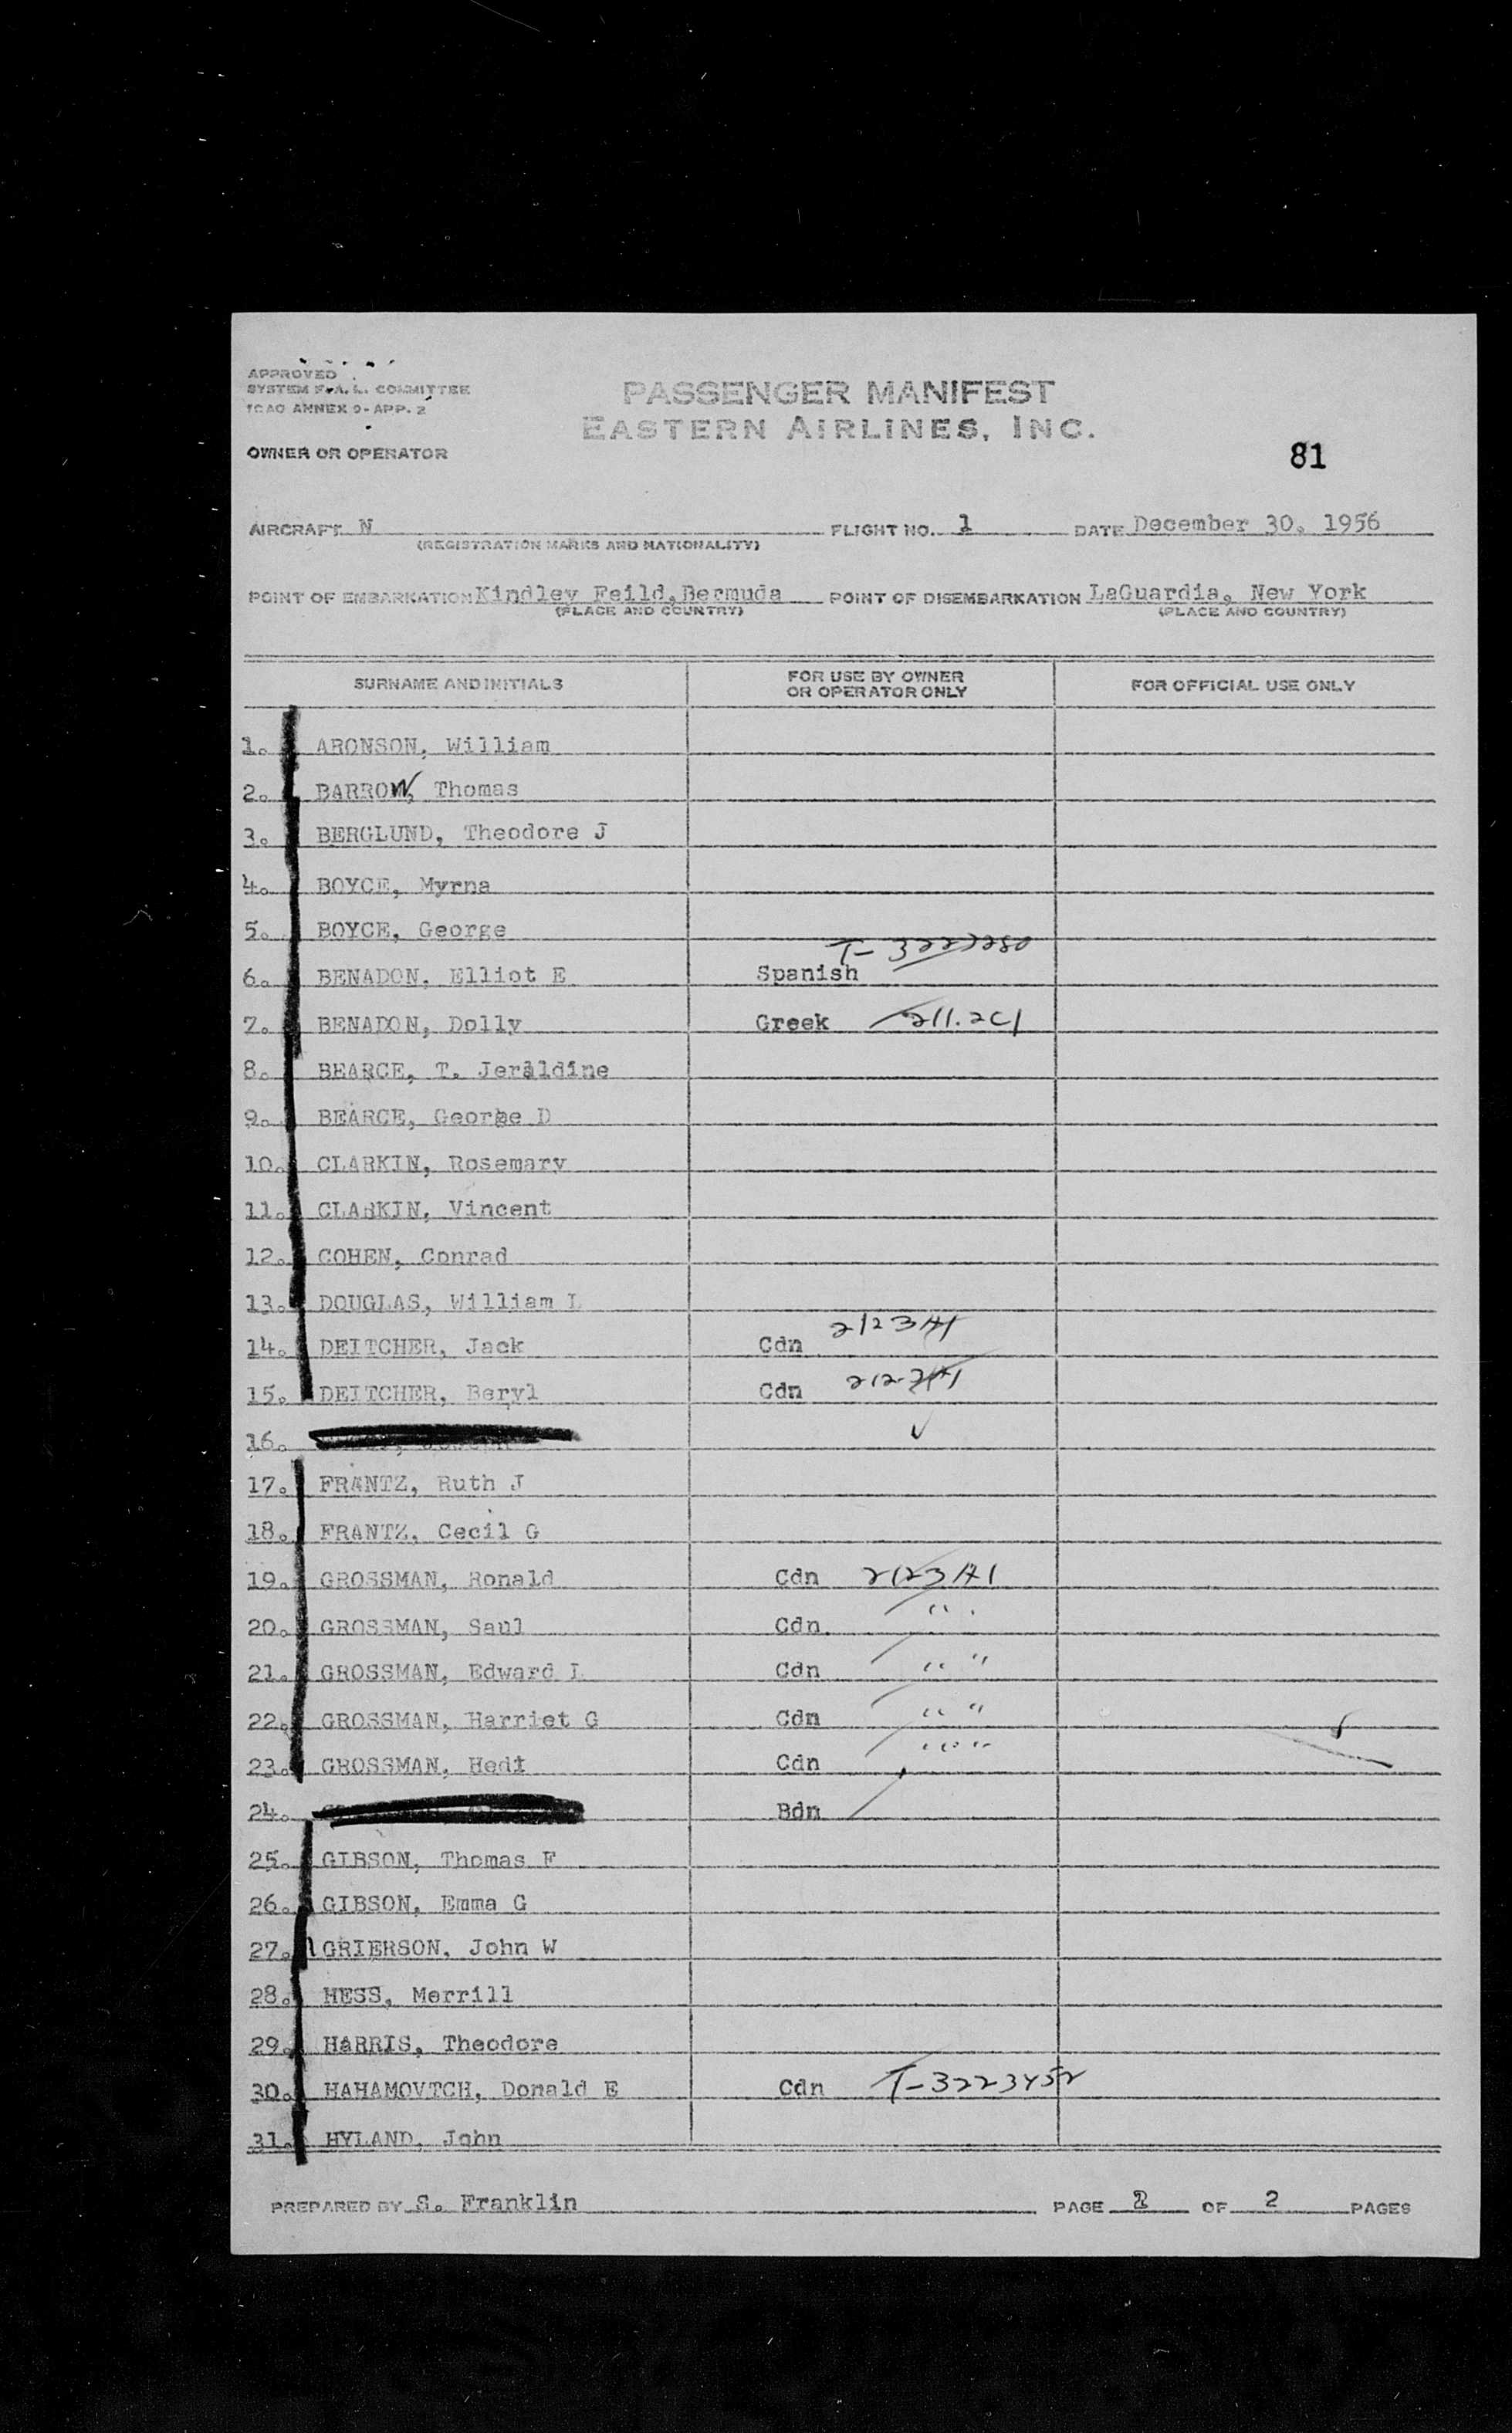 APPROVED
SYSTEM F.A.L. COMMITTEE
ICAO ANNEX 9-APP. 2
PASSENGER MANIFEST
EASTERN AIRLINES, INC.
OWNER OR OPERATOR
81
AIRCRAFT N FLIGHT NO. 1 DATE December 30. 1956
(REGISTRATION MARKS AND NATIONALITY)
POINT OF EMBARKATION Kindley Feild, Bermuda POINT OF DISEMBARKATION LaGuardia, New York
(PLACE AND COUNTRY) (PLACE AND COUNTRY)
SURNAME AND INITIALS FOR USE BY OWNER OR OPERATOR ONLY FOR OFFICIAL USE ONLY
1. ARONSON, William
2. BARROW, Thomas
3. BERGLUND, Theodore J
4. BOYCE, Myrna
5. BOYCE, George
6. BENADON, Elliot E Spanish T-3227280
7. BENADON, Dolly Greek
8. BEARCE, T. Jeraldine
9. BEARCE, George D
10. CLARKIN, Rosemary
11. CLARKIN, Vincent
12. COHEN, Conrad
13. DOUGLAS, William L
14. DEITCHER, Jack Cdn 2123A1
15. DEITCHER, Beryl Cdn 2123A1
16.
17. FRANTZ, Ruth J
18. FRANTZ, Cecil G
19. GROSSMAN, Ronald Cdn 2123A1
20. GROSSMAN, Saul Cdn. "
21. GROSSMAN, Edward L Cdn " "
22. GROSSMAN, Harriet G Cdn " "
23. GROSSMAN, Hedi Cdn " "
24. Bdn
25. GIBSON, Thomas F
26. GIBSON, Emma G
27. GRIERSON, John W
28. HESS, Merrill
29. HARRIS, Theodore
30. HAHAMOVTCH, Donald E Cdn T-3223452
31. HYLAND, John
PREPARED BY S. Franklin PAGE OF 2 PAGES